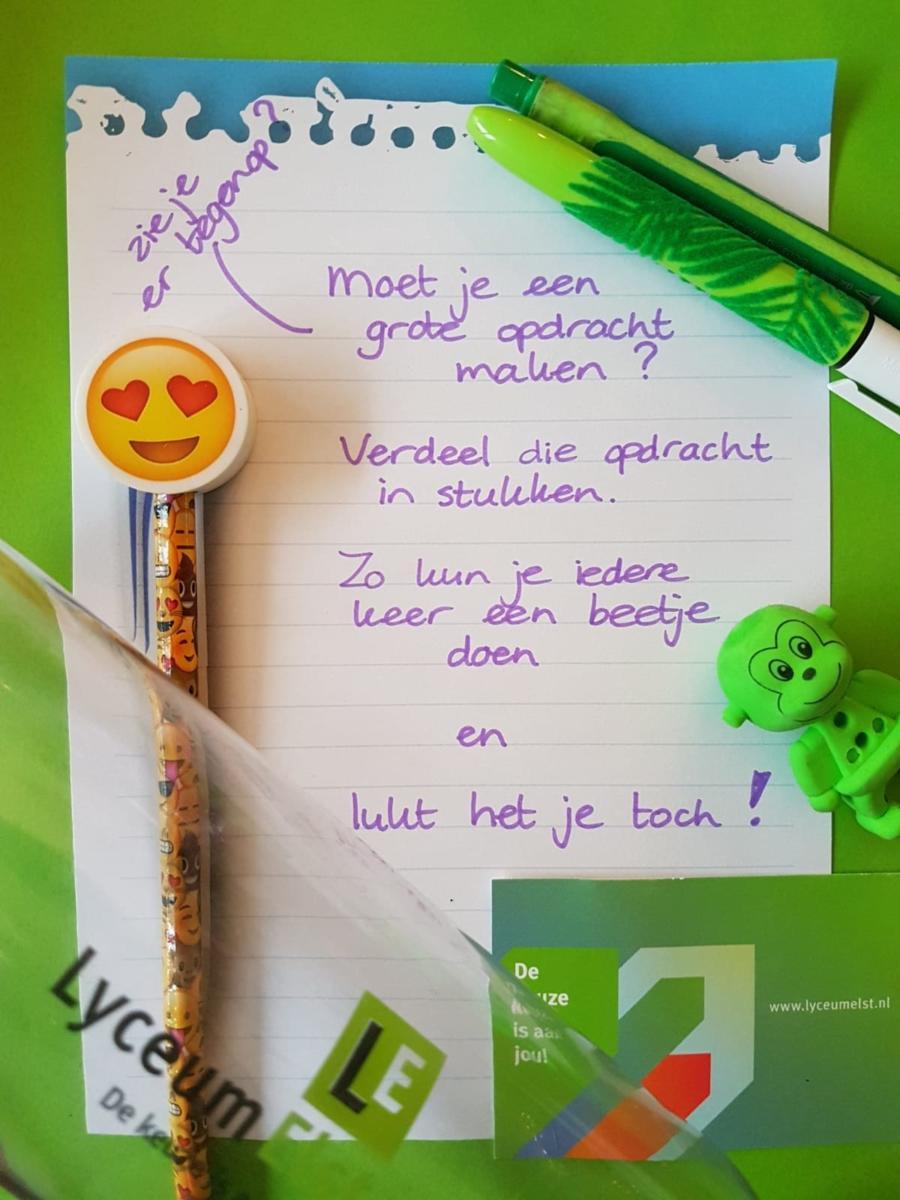 zie je
er tegenop?
Moet je een
grote opdracht
maken?
Verdeel die opdracht
in stukken.
Zo kun je iedere
keer een beetje
doen
en
lukt het je toch!
De
keuze
is aan
jou!
www.lyceumelst.nl
LE
Lyceum
De